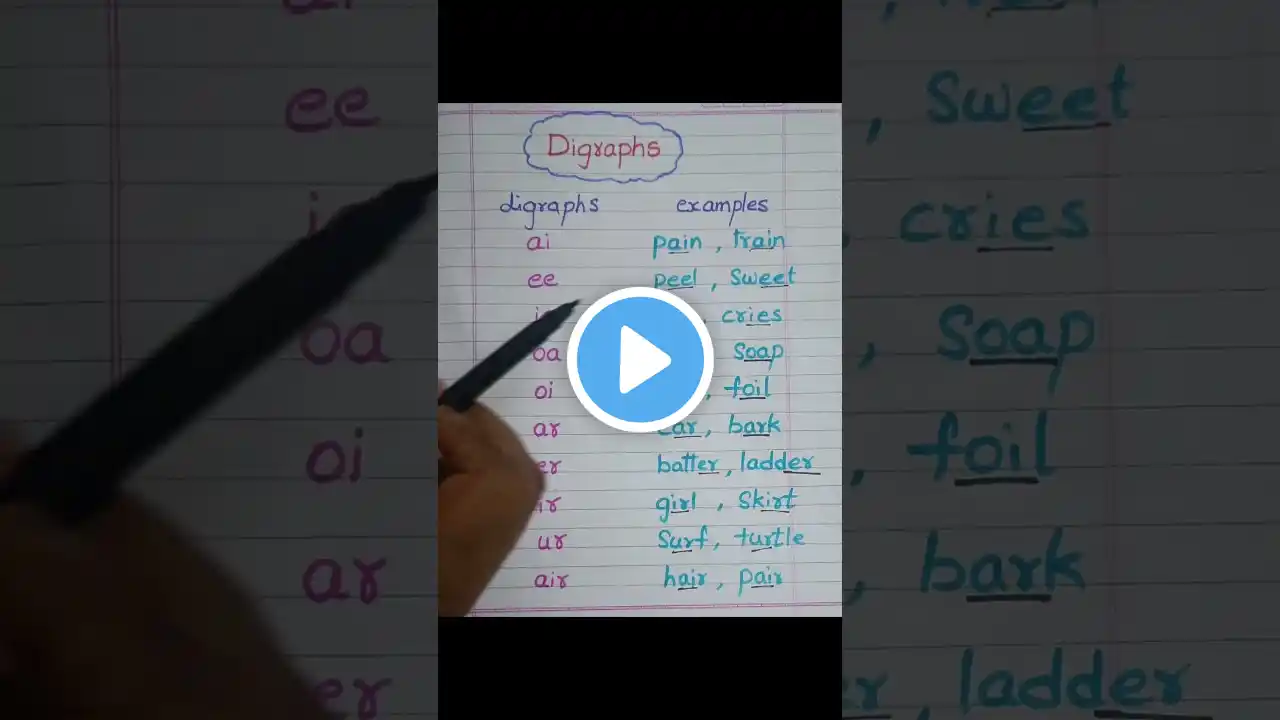 Digraphs
digraphs examples
ai pain , train
ee peel , Sweet
cries
oa Soap
oi , foil
ar car, bark
er batter, ladder
ir girl , Skirt
ur Surf, turtle
air hair, pair